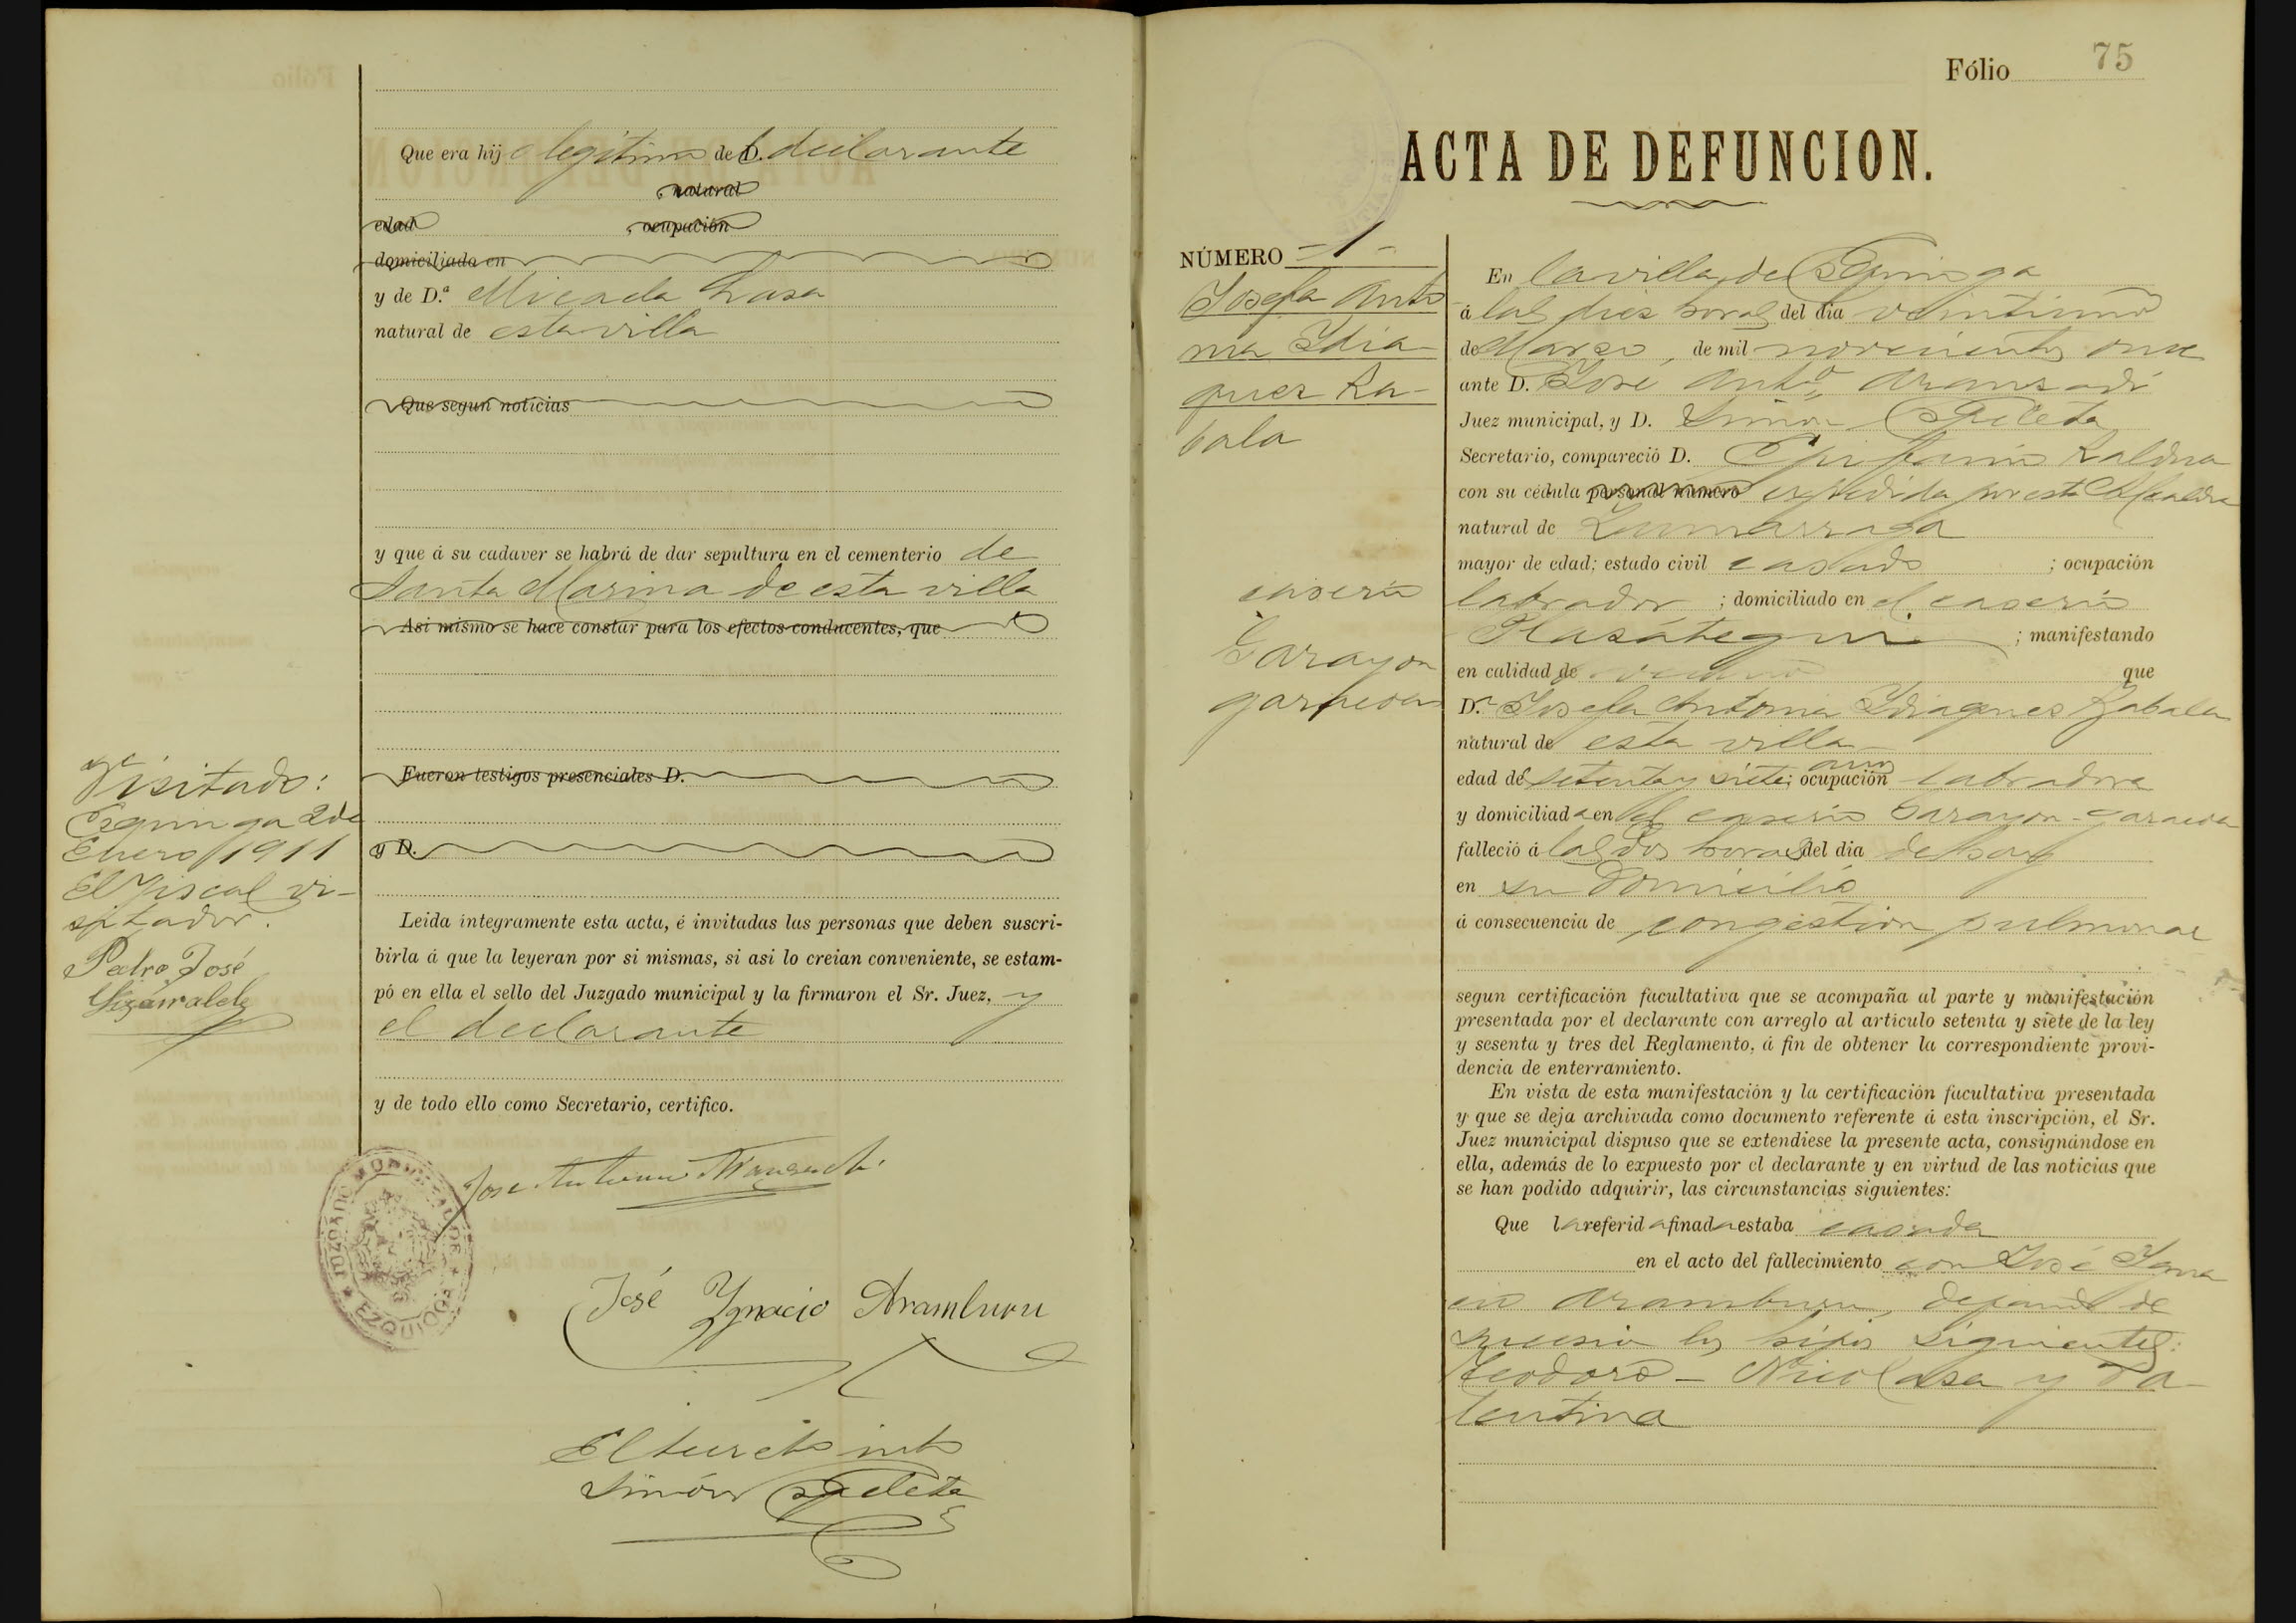 Que era hijo legítimo de D. el declarante
natural
edad , ocupación
domiciliado en
y de D.ª Micaela Lasa
natural de esta villa
Que segun noticias
y que á su cadaver se habrá de dar sepultura en el cementerio de
Santa Marina de esta villa
Asi mismo se hace constar para los efectos conducentes, que
Fueron testigos presenciales D.
y D.
Leida íntegramente esta acta, é invitadas las personas que deben suscri-
birla á que la leyeran por si mismas, si asi lo creian conveniente, se estam-
pó en ella el sello del Juzgado municipal y la firmaron el Sr. Juez, y
el declarante
y de todo ello como Secretario, certifico.
Visitado:
Ezquioga 2 de
Enero 1911
El Fiscal vi-
sitador.
Pedro José
José Antonio Aranzadi
JUZGADO MUNICIPAL DE EZQUIOGA
José Ygnacio Aramburu
El Secreto into
Simón
Fólio 75
ACTA DE DEFUNCION.
NÚMERO -1-
Josefa Anto
nia Idia
quez Za-
bala
caserío
Garayoa
garaicoa
En la villa de Ezquioga
á las diez horas del dia veintiuno
de Marzo, de mil novecientos once
ante D. José Antº Aranzadi
Juez municipal, y D. Simon
Secretario, compareció D. Epifanio Zaldua
con su cédula personal número expedida por esta Alcaldia
natural de Zumarraga
mayor de edad; estado civil casado ; ocupación
labrador ; domiciliado en el caserío
; manifestando
en calidad de vecino que
D.ª Josefa Antonia Idiaquez Zabala
natural de esta villa
edad de setenta y siete años; ocupación labradora
y domiciliada en el caserío Garayoa-garaicoa
falleció á las dos horas del dia de hoy
en su domicilio
á consecuencia de congestion pulmonar
segun certificación facultativa que se acompaña al parte y manifestación
presentada por el declarante con arreglo al artículo setenta y siete de la ley
y sesenta y tres del Reglamento, á fin de obtener la correspondiente provi-
dencia de enterramiento.
En vista de esta manifestación y la certificación facultativa presentada
y que se deja archivada como documento referente á esta inscripción, el Sr.
Juez municipal dispuso que se extendiese la presente acta, consignándose en
ella, además de lo expuesto por el declarante y en virtud de las noticias que
se han podido adquirir, las circunstancias siguientes:
Que la referida finada estaba casada
en el acto del fallecimiento con José Igna
cio Aramburu, dejando de
sucesion los hijos siguientes:
Teodoro - Nicolasa y Va
lentina